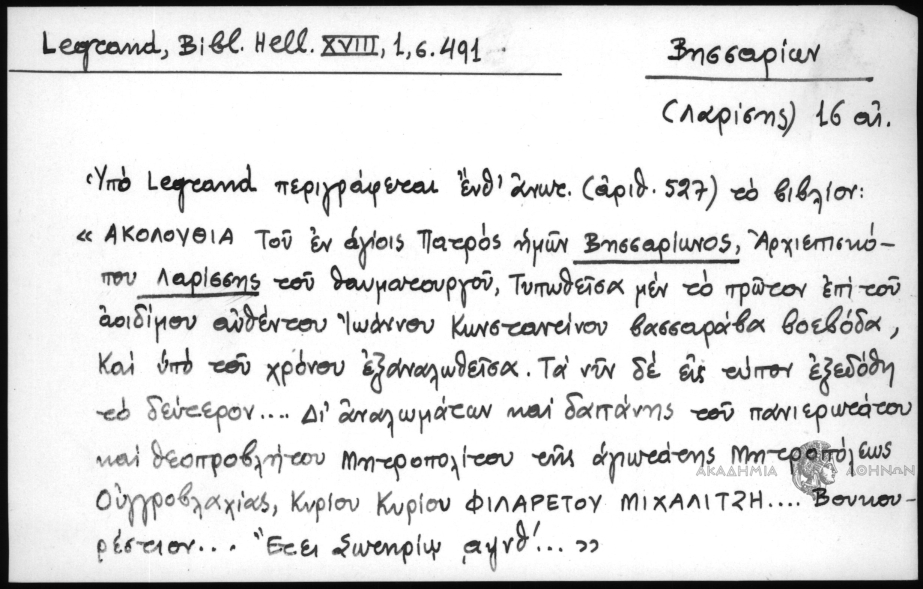 Legrand, Bibl. Hell. XVIII, 1, σ. 491
Βησσαρίων
(Λαρίσης) 16 αι.
Ὑπό Legrand περιγράφεται ἔνθ' ἀνωτ. (ἀριθ. 527) τό βιβλίον:
« ΑΚΟΛΟΥΘΙΑ Τοῦ ἐν ἁγίοις Πατρός ἡμῶν Βησσαρίωνος, Ἀρχιεπισκό-
που Λαρίσσης τοῦ θαυματουργοῦ, Τυπωθεῖσα μέν τό πρῶτον ἐπί τοῦ
ἀοιδίμου αὐθέντου Ἰωάννου Κωνσταντίνου βασσαράβα βοεβόδα,
Καί ὑπό τοῦ χρόνου ἐξαναλωθεῖσα. Τά νῦν δέ εἰς τύπον ἐξεδόθη
τό δεύτερον.... Δι' ἀναλωμάτων καί δαπάνης τοῦ πανιερωτάτου
καί θεοπροβλήτου Μητροπολίτου τῆς ἁγιωτάτης Μητροπόλεως
ΑΚΑΔΗΜΙΑ ΑΘΗΝΩΝ
Οὐγγροβλαχίας, Κυρίου Κυρίου ΦΙΛΑΡΕΤΟΥ ΜΙΧΑΛΙΤΖΗ.... Βουκου-
ρέστιον... Ἔτει Σωτηρίῳ ͵αψνθ'... »